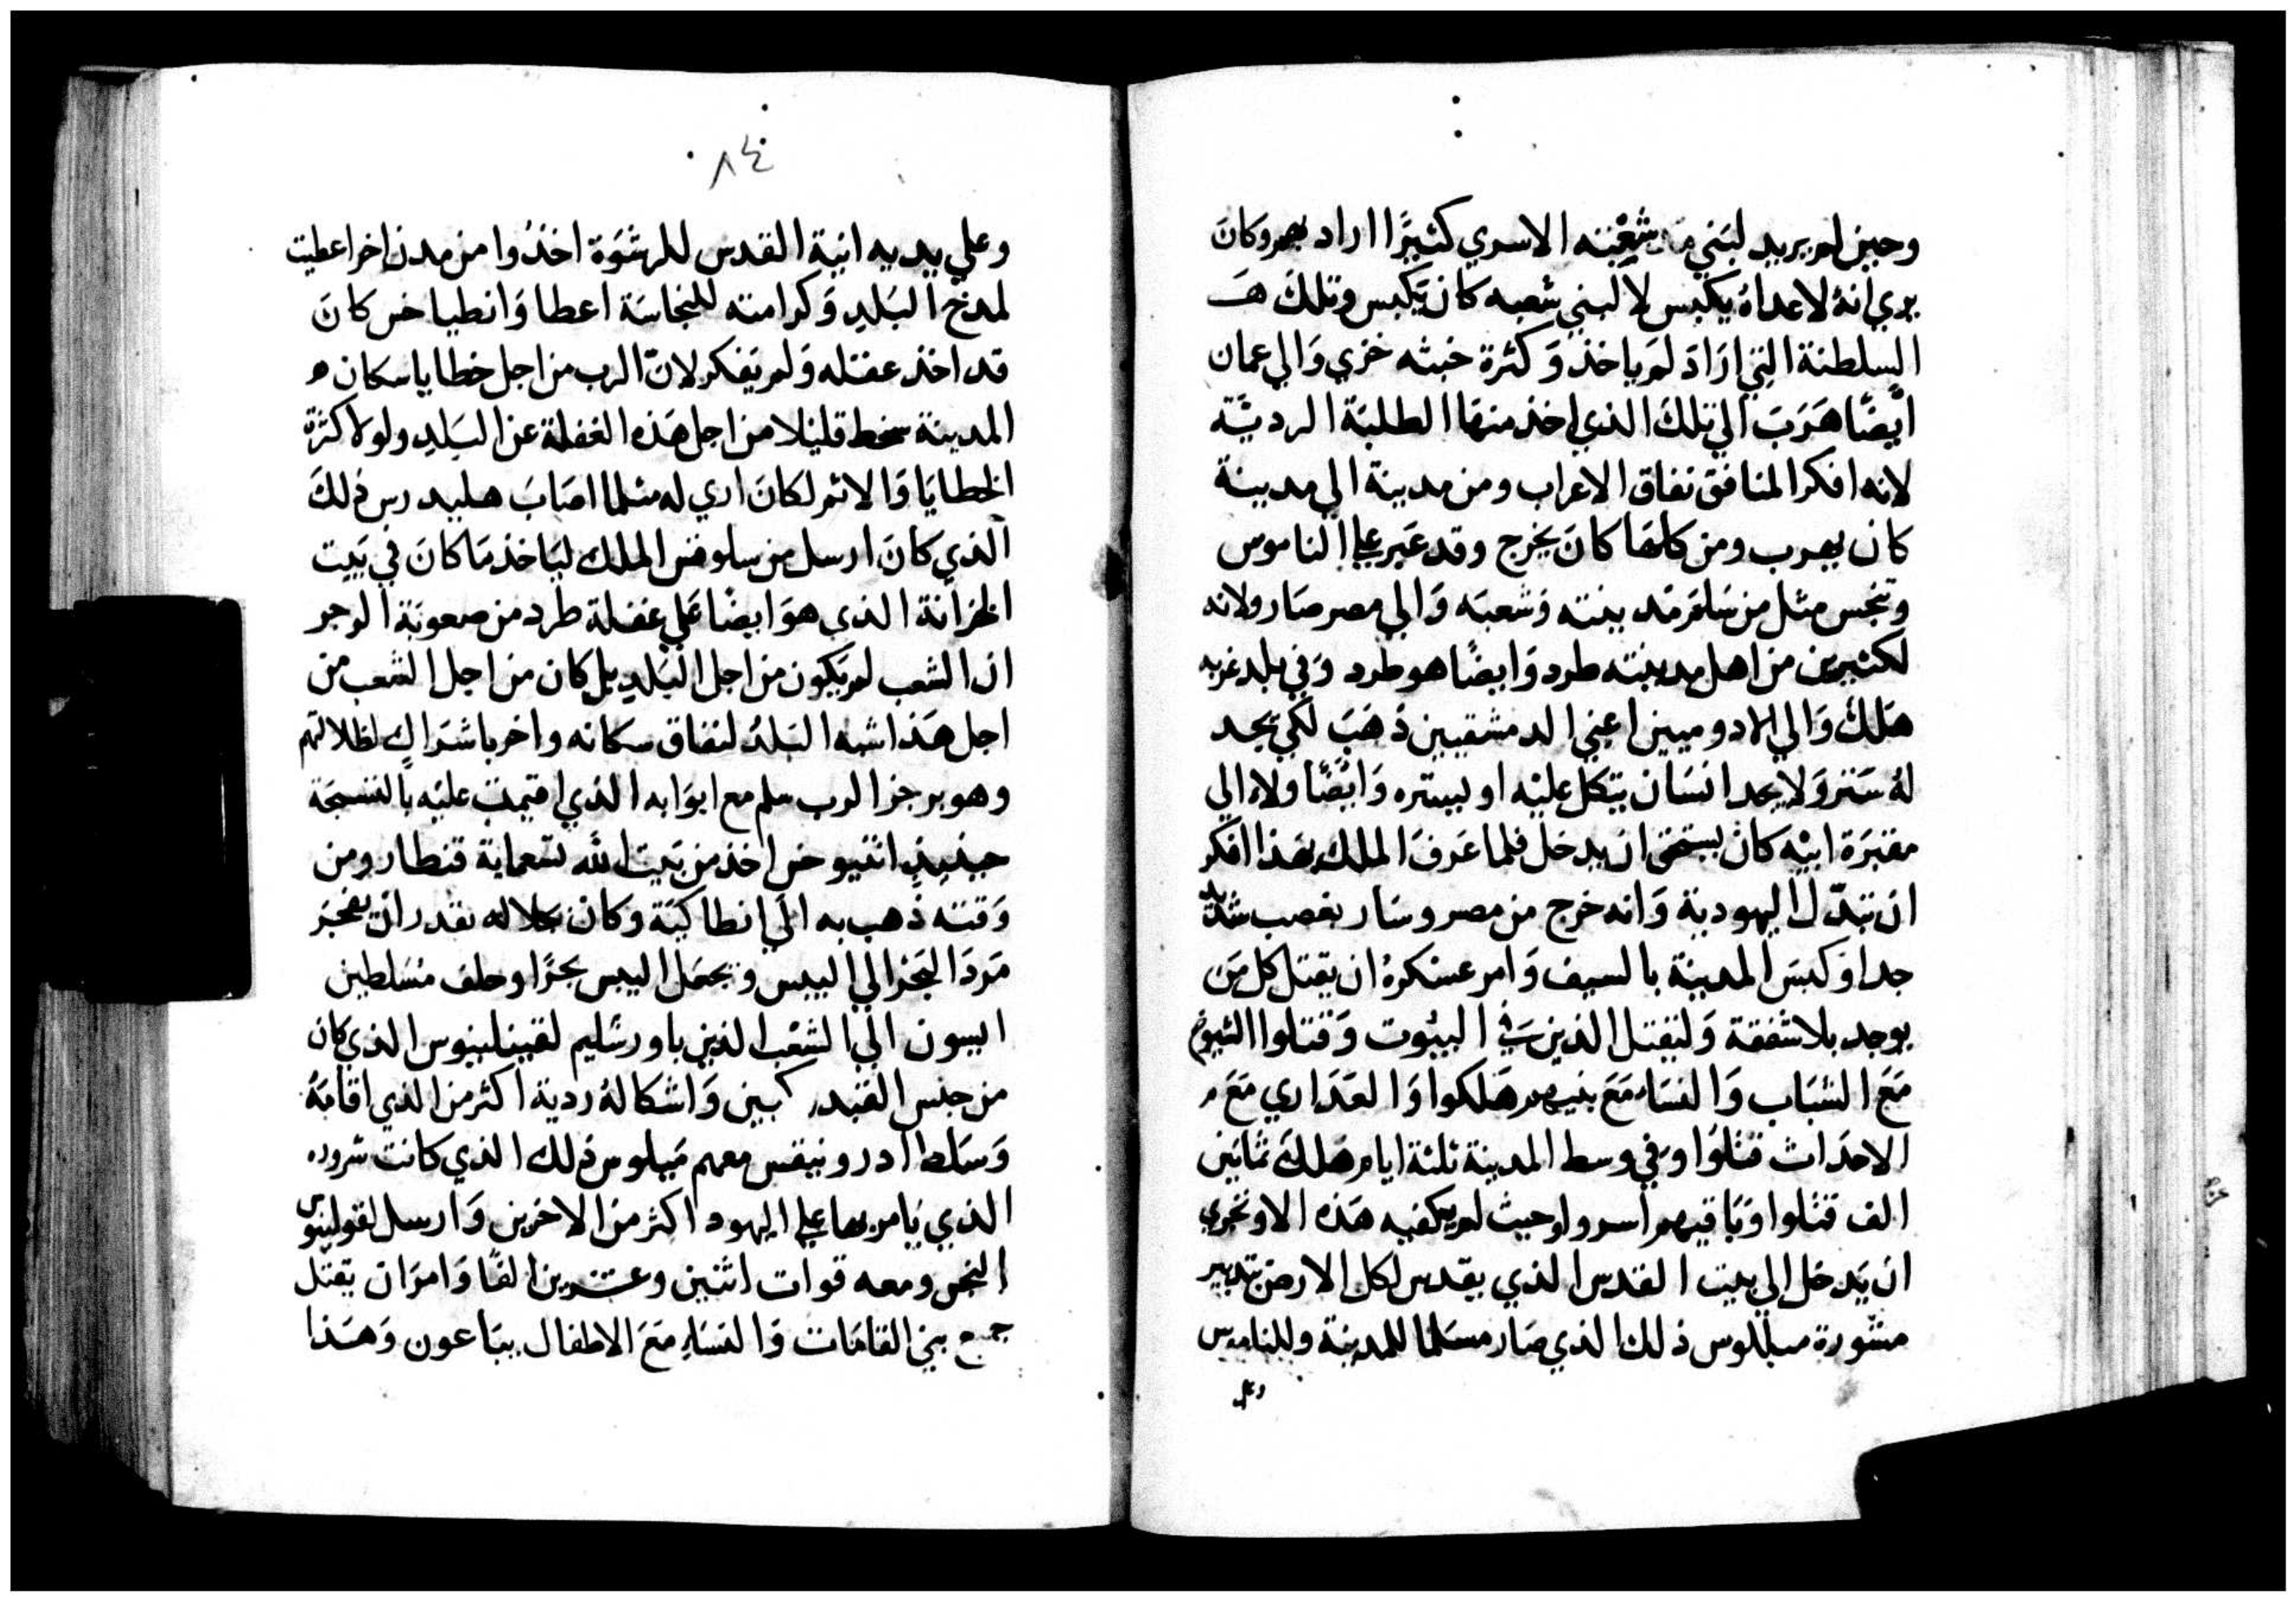 وحين لم يريد لبني مدينته الاسري كثيرًا اراد بهم وكانَ
يري انهُ لاعداهُ يكبس لا لبني شعبه كان يكبس وتلك هَـ
السلطنة التي ارادَ لم ياخذ وَكثرة خبثه خزي وَالي عمان
ايضًا هَرَبَ الي تلكَ الذي اخذ منها الطلبَة الرديَّة
لانه افكر المنافق نفاق الاعراب ومن مدينة الي مدينة
كان يهرب ومن كلها كانَ يخرج وقد عَبر علي الناموس
وتنجس مثل من سَلم مَدينته وَشعبَه وَالي مصر صَار ولانه
لكثيرين من اهل مدينته طرد وَايضًا هو طرد وَفي بلد غربه
هَلكَ وَالي الادوميين اعني الدمشقيين ذهَبَ لكي يجد
لهُ سَتر وَلا يجد انسَان يتكل عليْه او يستره وَايضًا ولا الي
مقبَرَة ابيْه كان يستحق ان يدخل فلما عَرفَ الملك بهَذا افكر
ان تبدّل اليهودية وَانه خرج من مصر وسَار بغصب شديد
جدا وَكبسَ المدينة بالسيف وَامر عسْكرهُ ان يقتل كل مَن
يوجد بلا شفقة وَليقتل الذين في البيُوت وَقتلوا الشيوخ
مَعَ الشبَاب وَالنسَاء مَعَ بنيهم هَلكوا وَالعَذاري مَعَ
الاحدَاث قتلوا وَفي وسط المدينة ثلثة ايام هَلكَ ثمانين
الف قتلوا وبَاقيهم اسروا وحيث لم يكفيه هَذه الا وتجري
ان يَدخل الي بيت القدس الذي يقدس لكل الارض بتدبير
مشورة ميللوس ذلك الذي صَار مسَلما للمدينة وللناموس
وعلي
٨٤
وعلي يديه انية القدس للرشوَة اخذُوا من مدن اخر اعطيت
لمدح البَلدِ وَكرامته للنجاسَة اعطا وَانطياخس كانَ
قد اخذ عقله وَلم يَفكر لانّ الرب من اجل خطايا سكان
المدينة سخط قليلا من اجل هَذه الغفلة عن البَلدِ ولولا كثرَة
الخطايَا وَالاثم لكانَ اري له مثلما اصَابَ هليدرس ذلكَ
الذي كانَ ارسل من سلوقس الملك ليَاخذ مَا كانَ في بَيت
الخزانَة الذي هوَ ايضًا عَلي غفلة طرد من صعونَة الوجر
ان الشعب لم يَكون من اجل البَلدِ بل كان من اجل الشعب من
اجل هَذا اشبه البَلدُ لنفاق سكانه واخر باشتراك لظلالتهم
وهو برجز الرب سلم مع ابوَابه الذي اقيمت عليْه بالفسحَة
حينيذٍ انتيوخس اخذ من بَيت الله تسعماية قنطار ومن
وَقته ذَهب به الي انطاكيَة وكان بجلاله يقدر ان يفجر
مَردَ البَحر الي اليبس وَيجعَل اليبس بحرًا وحلف مُسَلطين
ايسون الي الشعْب الذين باورشليم لفيلبينوس الذي كان
من جنس القيد كبين وَاشكالهُ ردية اكثر من الذي اقامَهُ
وَسَلط ادرونيقس معهم مَيلوس ذلك الذي كانت شروره
الذي يَامر بها علي اليهود اكثر من الاخرين وَارسل لقولينوس
النجس ومعه قوات اثنين وعشرين الفًا وَامرَ ان يقتل
جميع بني القامَات وَالنسَاءِ مَعَ الاطفال يبَاعون وَهَذا